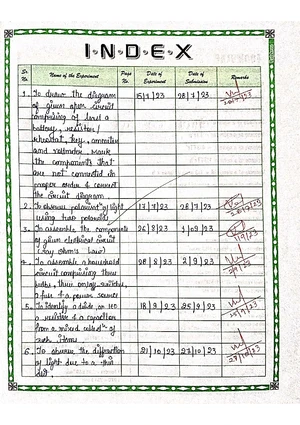 I·N·D·E·X
Sr. No. Name of the Experiment Page No. Date of Experiment Date of Submission Remarks
1. To draw the diagram 15/7/23 28/7/23
of given open circuit
comprising of least a
battery, resistor/
rheostat, key, ammeter
and voltmeter. Mark
the components that
are not connected in
proper order & connect
the circuit diagram.
2. To observe polarisatn of light 17/7/23 28/7/23
using two polaroids
3. To assemble the components 26/8/23 1/9/23
of given electrical circuit
4. To assemble a household 28/8/23 2/9/23
circuit comprising three
bulbs, three on/off switches,
a fuse & a power source
5. To identify a diode, an LED 18/9/23 25/9/23
a resistor & a capacitor
from a mixed collectn of
such items
6. To observe the diffraction 21/10/23 27/10/23
of light due to a thin
slit.